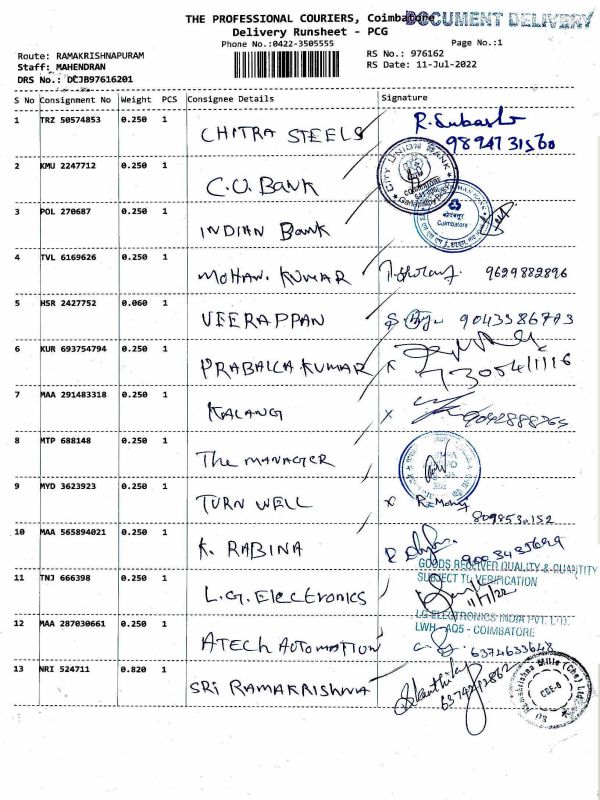 THE PROFESSIONAL COURIERS, Coimbatore
DOCUMENT DELIVERY
Delivery Runsheet - PCG
Phone No.:0422-3505555
Page No.:1
Route: RAMAKRISHNAPURAM
RS No.: 976162
Staff: MAHENDRAN
RS Date: 11-Jul-2022
DRS No.: DCJB97616201
S No Consignment No Weight PCS Consignee Details Signature
1 TRZ 50574853 0.250 1 CHITRA STEELS R. Subash
9894731560
2 KMU 2247712 0.250 1 C.U. BANK CITY UNION BANK
3 POL 270687 0.250 1 INDIAN BANK कोयंबतूर
Coimbatore
4 TVL 6169626 0.250 1 MOHAN. KUMAR 9629882896
5 HSR 2427752 0.060 1 VEERAPPAN 9043386773
6 KUR 693754794 0.250 1 PRABALLA KUMAR
7 MAA 291483318 0.250 1 KALANG X
8 MTP 688148 0.250 1 The MANAGER
9 MYD 3623923 0.250 1 TURN WELL X R. Mony
8098530152
10 MAA 565894021 0.250 1 K. RABINA 9003485699
GOODS RECEIVED QUALITY & QUANTITY
SUBJECT TO VERIFICATION
11 TNJ 666398 0.250 1 L.G. Electronics 11/7/22
LG ELECTRONICS INDIA PVT. LTD.
LWH - AQ5 - COIMBATORE
12 MAA 287030661 0.250 1 ATECH AUTOMATION 6374633648
13 NRI 524711 0.820 1 SRI RAMAKRISHNA
Ramakrishna Mills (Cbe) Ltd
CBE-6